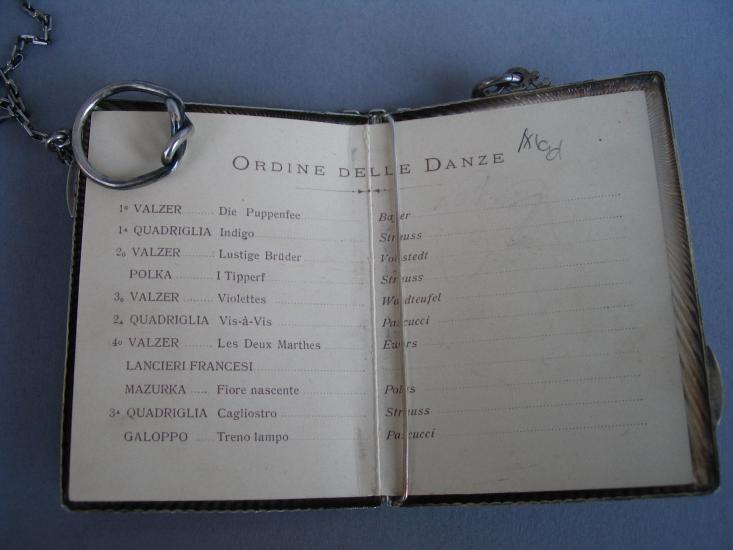 ORDINE DELLE DANZE
1º VALZER ........ Die Puppenfee Bayer
1ª QUADRIGLIA Indigo Strauss
2º VALZER ........ Lustige Brüder Vollstedt
POLKA ..... I Tipperf Strauss
3º VALZER ........ Violettes Waldteufel
2ª QUADRIGLIA Vis-à-Vis Pascucci
4º VALZER ..... Les Deux Marthes
LANCIERI FRANCESI
MAZURKA ..... Fiore nascente
3ª QUADRIGLIA Cagliostro Strauss
GALOPPO ..... Treno lampo Pascucci